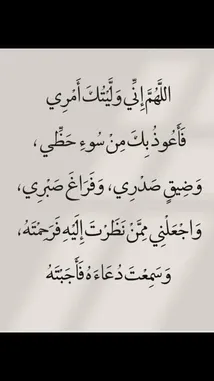 اللَّهُمَّ إِنِّي وَلَّيْتُكَ أَمْرِي
فَأَعُوذُ بِكَ مِنْ سُوءِ حَظِّي،
وَضِيقِ صَدْرِي، وَفَرَاغَ صَبْرِي،
وَاجْعَلْنِي مِمَّنْ نَظَرْتَ إِلَيْهِ فَرَحِمْتَهُ،
وَسَمِعْتَ دُعَاءَهُ فَأَجَبْتَهُ